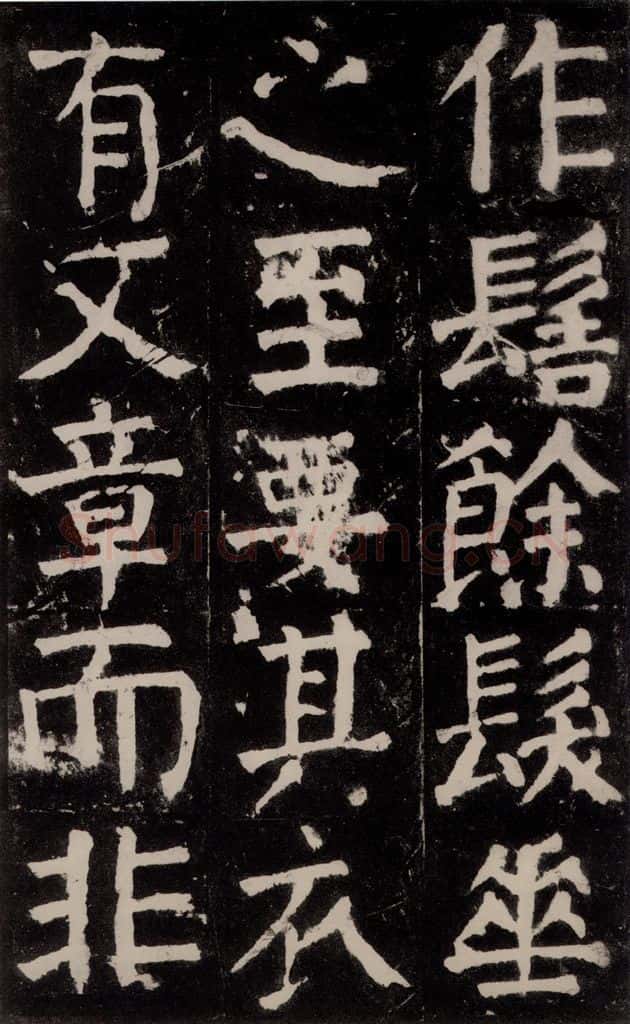 作髻餘髮垂
之至要其衣
有文章而非
Shufawang.CN